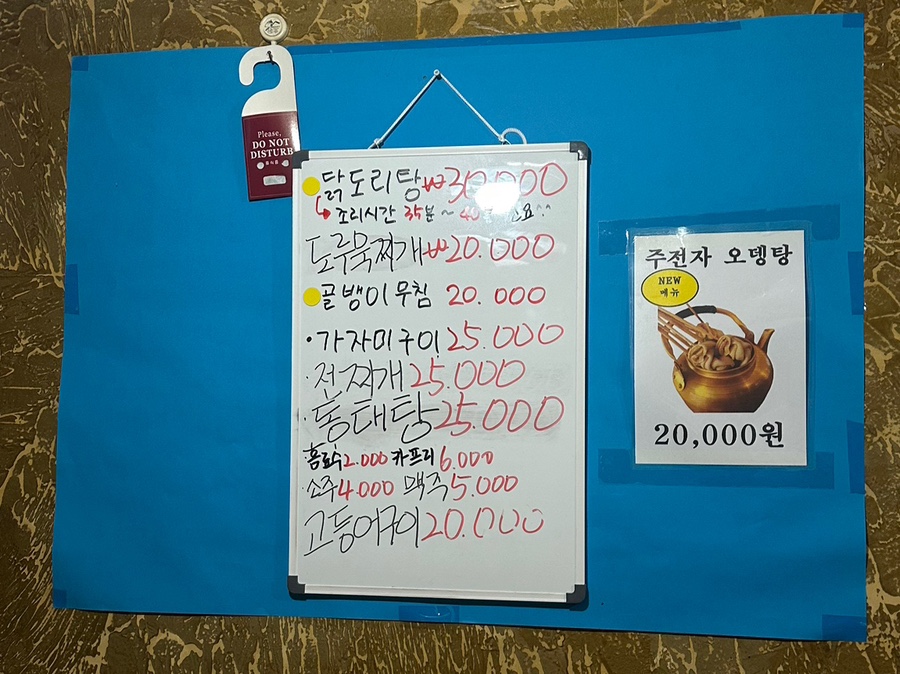 Please,
DO NOT
DISTURB
닭도리탕 ₩30,000
↳ 조리시간 35분 ~ 40 요^^
도루묵찌개 ₩20.000
골뱅이무침 20.000
· 가자미구이 25.000
· 전찌개 25.000
· 동태탕 25.000
음료수 2.000 카프리 6.000
· 소주 4.000 맥주 5.000
고등어구이 20.000
주전자 오뎅탕
NEW
메뉴
20,000원